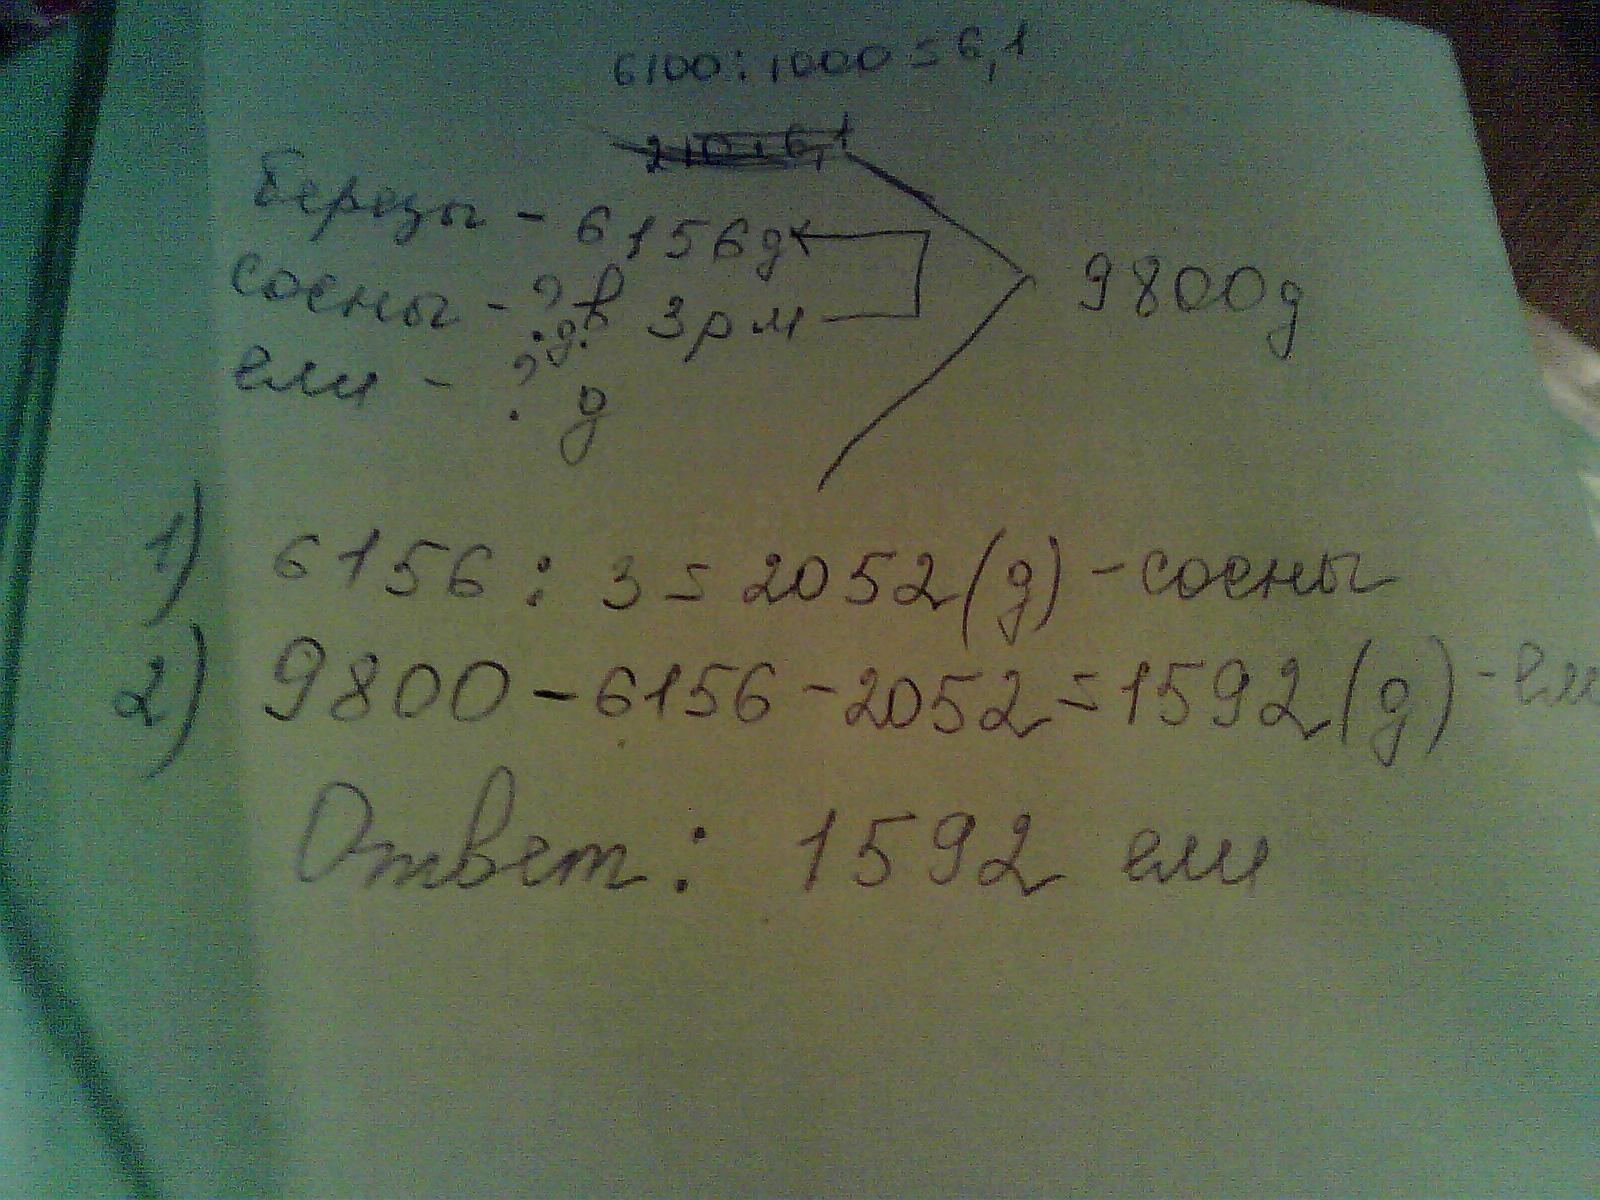 6100:1000=6,1
березы - 6156д
сосны - ?д. в 3р м
ели - ? д
9800д
1) 6156 : 3 = 2052(д) - сосны
2) 9800 - 6156 - 2052 = 1592(д) - ели
Ответ: 1592 ели